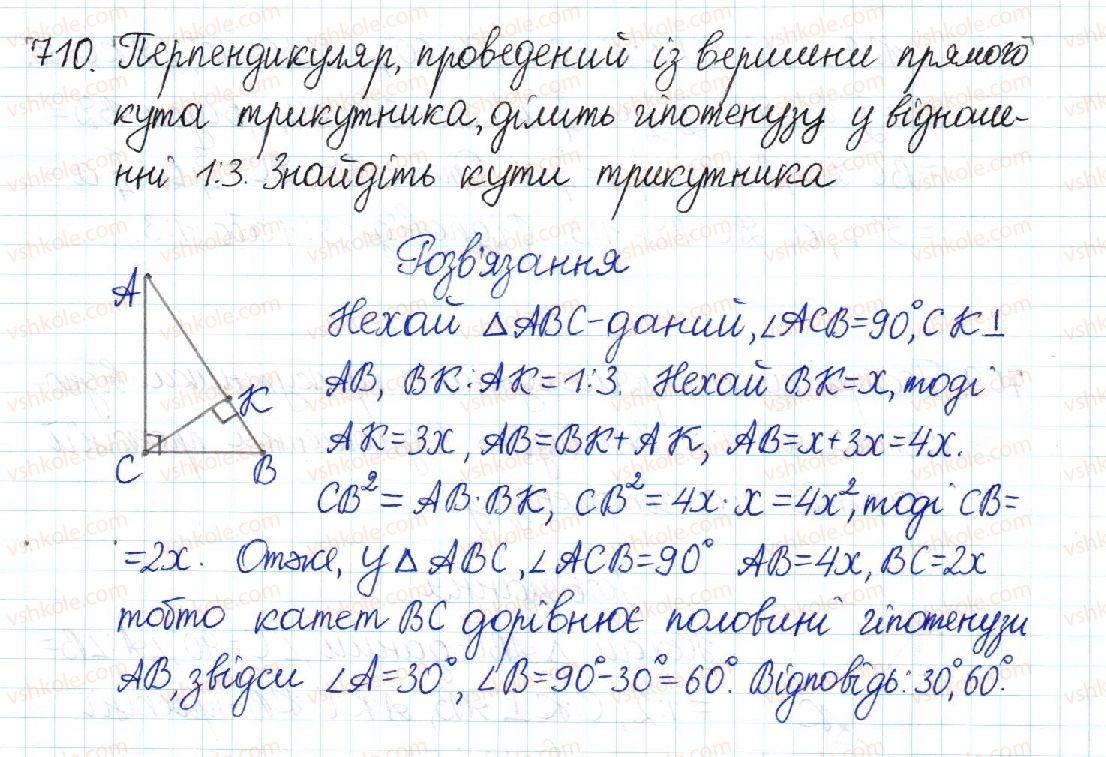 710. Перпендикуляр, проведений із вершини прямого
кута трикутника, ділить гіпотенузу у відноше-
нні 1:3. Знайдіть кути трикутника
Розв'язання
A
K
C
B
Нехай △ABC-даний, ∠ACB=90°, CK⊥
AB, BK:AK=1:3. Нехай BK=x, тоді
AK=3x, AB=BK+AK, AB=x+3x=4x.
CB²=AB·BK, CB²=4x·x=4x², тоді CB=
=2x. Отже, у △ABC, ∠ACB=90° AB=4x, BC=2x
тобто катет BC дорівнює половині гіпотенузи
AB, звідси ∠A=30°, ∠B=90°-30°=60°. Відповідь: 30°, 60°.
vshkole.com